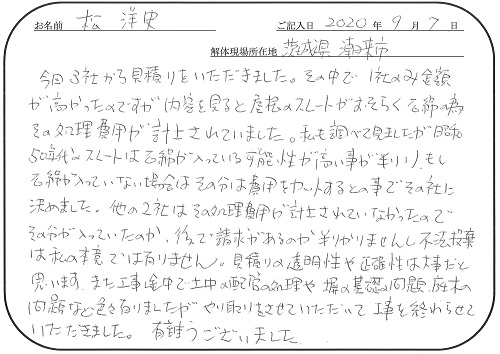 お名前 松 洋史 ご記入日 2020 年 9 月 7 日
解体現場所在地 茨城県 潮来市
今回3社から見積りをいただきました。その中で1社のみ金額
が高かったのですが内容を見ると屋根のスレートがおそらく石綿の為
その処理費用が計上されていました。私も調べて見ましたが昭和
50年代のスレートは石綿が入っている可能性が高い事が判り、もし
石綿が入っていない場合はその分は費用をカットするとの事でその社に
決めました。他の2社はその処理費用が計上されていなかったので
その分が入っていたのか、後で請求があるのか判りませんし不法投棄
は私の本意ではありません。見積りの透明性や正確性は大事だと
思います。また工事途中で土中の配管の処理や塀の基礎の問題、庭木の
問題など色々有りましたがやり取りをさせていただいて工事を終わらせて
いただきました。有難うございました。